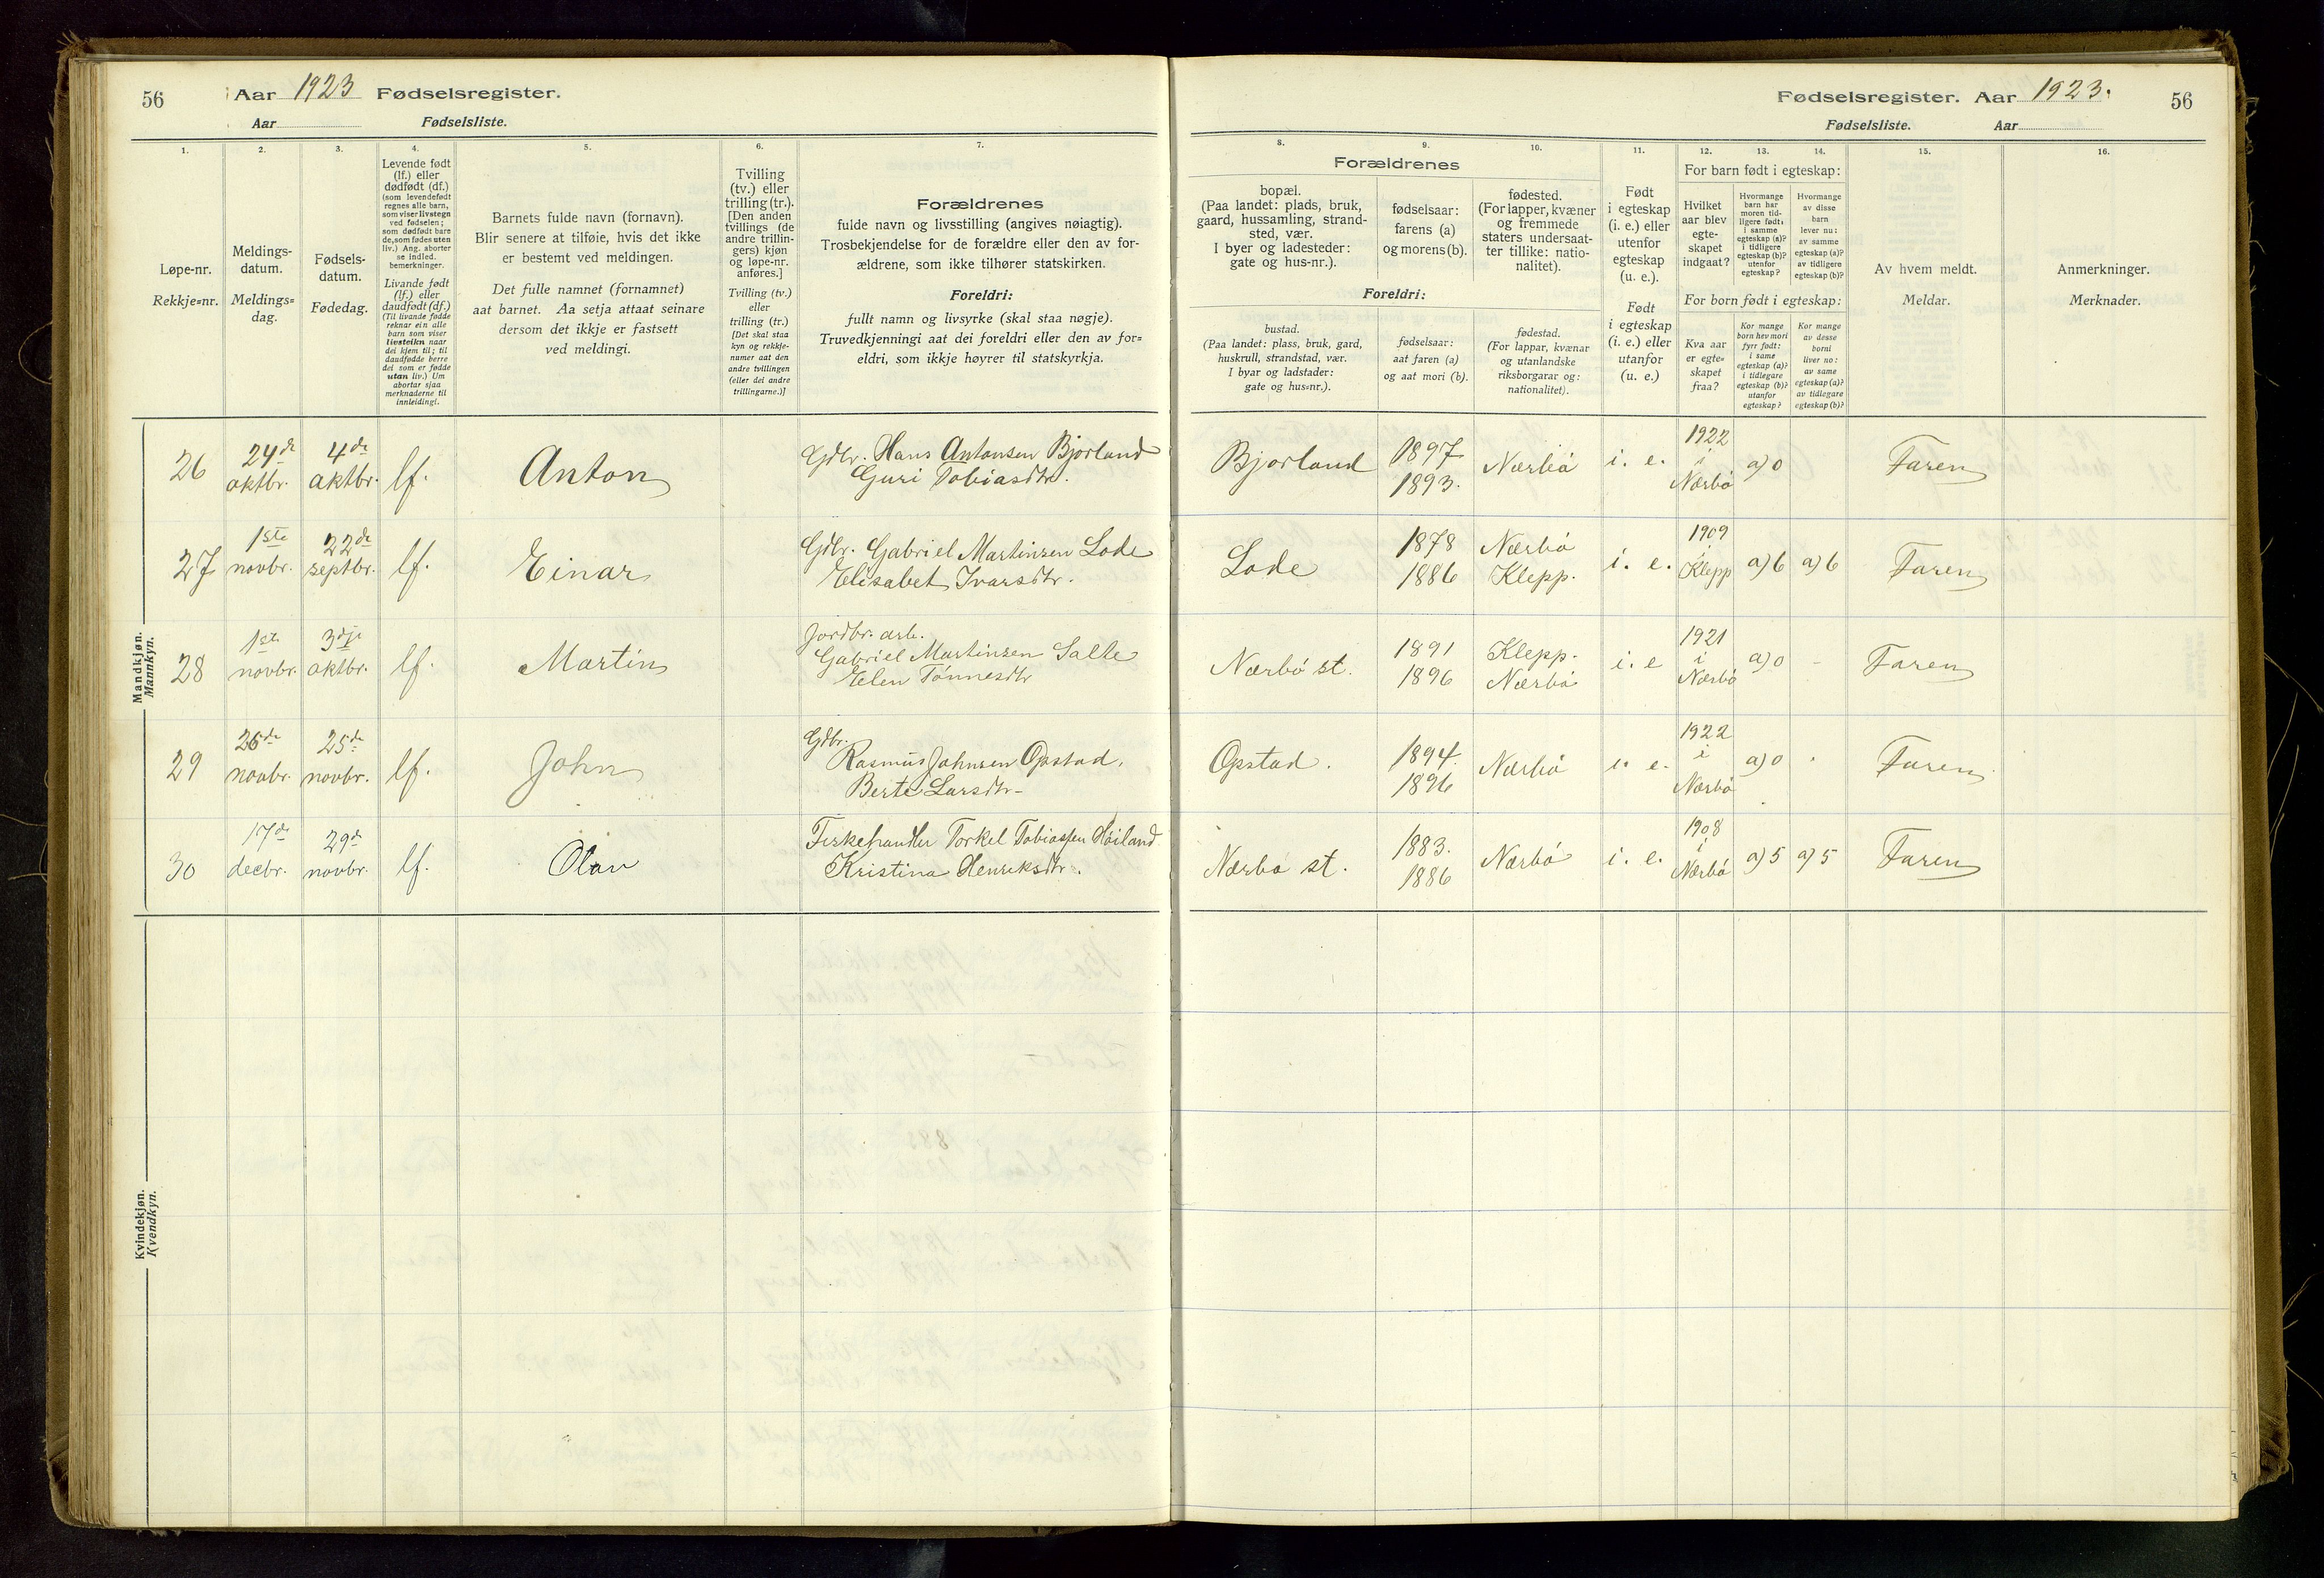 56
Aar 1923 Fødselsregister.
Aar Fødselsliste.
Fødselsregister. Aar 1923.
56
Fødselsliste. Aar
1.
2.
3.
4.
5.
6.
7.
8.
9.
10.
11.
12.
13.
14.
15.
16.
Løpe-nr.
Rekkje=nr.
Meldings-
datum.
Meldings=
dag.
Fødsels-
datum.
Fødedag.
Levende født
(lf.) eller
dødfødt (df.)
(som levendefødt
regnes alle barn,
som viser livstegn
ved fødselen;
som dødfødt bare
de, som fødes uten
liv.) Ang. aborter
se indled.
bemerkninger.
Livande født
(lf.) eller
daudfødt (df.)
(Til livande fødde
reknar ein alle
barn som viser
livsteikn naar
dei kjem til; til
daudfødde berre
dei som er fødde
utan liv.) Um
abortar sjaa
merknaderne til
innleidingi.
Barnets fulde navn (fornavn).
Blir senere at tilføie, hvis det ikke
er bestemt ved meldingen.
Det fulle namnet (fornamnet)
aat barnet. Aa setja attaat seinare
dersom det ikkje er fastsett
ved meldingi.
Tvilling
(tv.) eller
trilling (tr.).
[Den anden
tvillings (de
andre trillin-
gers) kjøn
og løpe-nr.
anføres.]
Tvilling (tv.)
eller
trilling (tr.)
[Det skal staa
kyn og rekkje-
numer aat den
andre tvillingen
(eller dei andre
trillingarne.)]
Forældrenes
fulde navn og livsstilling (angives nøiagtig).
Trosbekjendelse for de forældre eller den av for-
ældrene, som ikke tilhører statskirken.
Foreldri:
fullt namn og livsyrke (skal staa nøgje).
Truvedkjenningi aat dei foreldri eller den av for=
eldri, som ikkje høyrer til statskyrkja.
Forældrenes
bopæl.
(Paa landet: plads, bruk,
gaard, hussamling, strand-
sted, vær.
I byer og ladesteder:
gate og hus-nr.).
fødselsaar:
farens (a)
og morens (b).
fødested.
(For lapper, kvæner
og fremmede
staters undersaat-
ter tillike: natio-
nalitet).
Foreldri:
bustad.
(Paa landet: plass, bruk, gard,
huskrull, strandstad, vær.
I byar og ladstader:
gate og hus=nr.).
fødselsaar:
aat faren (a)
og aat mori (b).
fødestad.
(For lappar, kvænar
og utanlandske
riksborgarar og:
nationalitet).
Født
i egteskap
(i. e.) eller
utenfor
egteskap
(u. e.).
Født
i egteskap
(i. e.) eller
utanfor
(u. e.)
For barn født i egteskap:
Hvilket
aar blev
egte-
skapet
indgaat?
Hvormange
barn har
moren tid-
ligere født:
i samme
egteskap (a)?
i tidligere
egteskap (b)?
utenfor
egteskap?
Hvormange
av disse
barn
lever nu:
av samme
egteskap (a)?
av tidligere
egteskap (b)?
For born født i egteskap:
Kva aar
er egte=
skapet
fraa?
Kor mange
born hev mori
fyrr født:
i same
egteskap (a)?
i tidlegare
egteskap (b)?
utanfor
egteskap?
Kor mange
av desse
borni
liver no:
av same
egteskap (a)?
av tidlegare
egteskap (b)?
Av hvem meldt.
Meldar.
Anmerkninger.
Merknader.
Mandkjøn.
Mannkyn.
26 24de oktbr. 4de oktbr. lf. Anton
Gdbr. Hans Antonsen Bjorland
Guri Tobiasdtr.
Bjorland 1897 1893. Nærbö i. e. 1922 i Nærbö a) 0 Faren
27 1ste novbr. 22de septbr. lf. Einar
Gdbr. Gabriel Martinsen Lode
Elisabet Ivarsdtr.
Lode 1878 1886 Nærbö Klepp. i. e. 1909 i Klepp a) 6 a) 6 Faren
28 1ste novbr. 3dje oktbr. lf. Martin
Jordbr. arb.
Gabriel Martinsen Salte
Elen Tönnesdtr
Nærbö st. 1891 1896 Klepp. Nærbö i. e 1921 i Nærbö a) 0 - Faren
29 26de novbr. 25de novbr. lf. John
Gdbr.
Rasmus Johnsen Opstad.
Berte Larsdtr-
Opstad. 1894. 1896 Nærbö i. e. 1922 i Nærbö a) 0 Faren
30 17de decbr. 29de novbr. lf. Olav
Fiskehandler Torkel Tobiassen Höiland
Kristina Henriksdtr.
Nærbo st. 1883. 1886 Nærbö i. e. 1908 i Nærbö a) 5 a) 5 Faren
Kvindekjøn.
Kvendkyn.